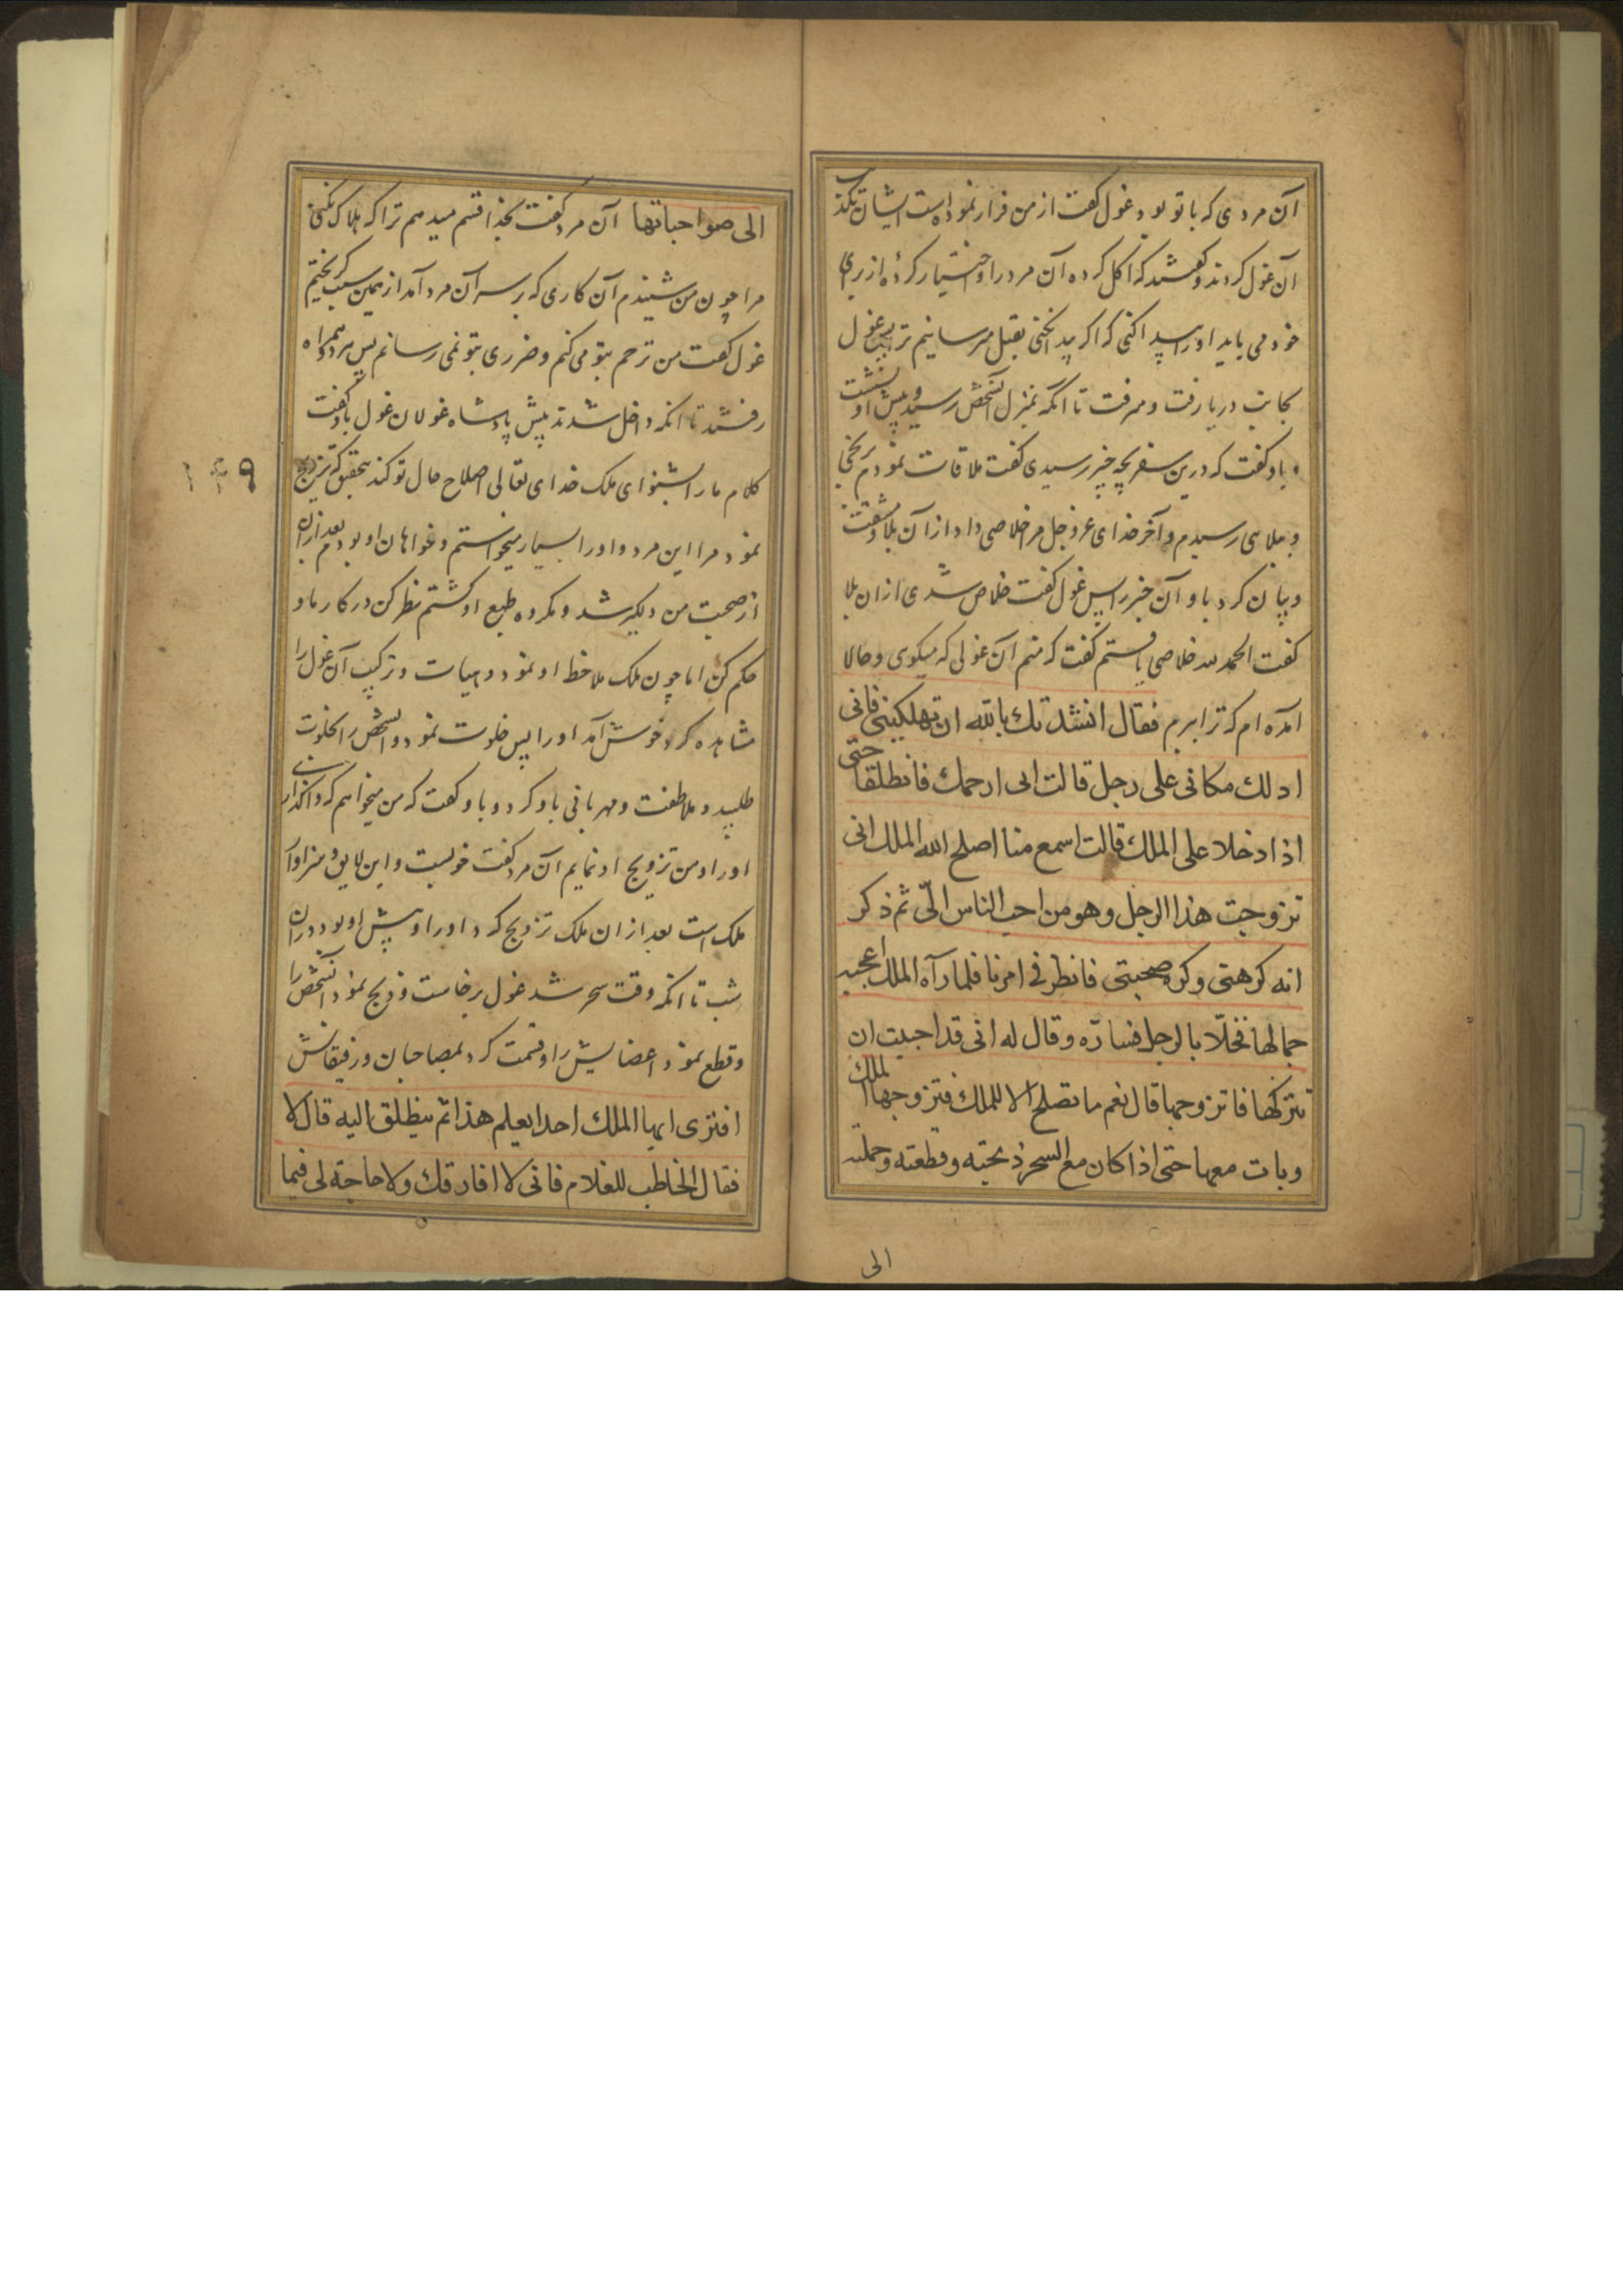 آن مردی که با تو بود غول گفت از من فرار نموده است ایشان تکذیب
آن غول کردند و گفتند که اکل کرده آن مرد را و اختیار کرده از برای
خود می باید او را پیدا کنی که اگر پیدا نکنی بقتل میرسانیم ترا پس غول
بجانب دریا رفت و میرفت تا آنکه بمنزل آنشخص رسید و پیش او نشست
و باو گفت که درین سفر بچه چیز رسیدی گفت ملاقات نمودم برنجی
و بلایی رسیدم و آخر خدای عزوجل مرا خلاصی داد از آن بلا و مشقت
و بیان کرد باو آن خبر را پس غول گفت خلاص شدی از ان بلا
گفت الحمد لله خلاصی یافتم گفت که منم آن غولی که میکوی و حالا
آمده ام که ترا ببرم فقال انشدتك بالله ان تهلكيني فاني
ادلك مكانى على رجل قالت انى ارحمك فانطلقا حتى
اذا دخلا على الملك قالت اسمع منا اصلح الله الملك انى
تزوجت هذا الرجل وهو من احب الناس الىّ ثم ذكر
انه كرهنى وكره صحبتى فانظر فى امرنا فلما رآه الملك اعجبه
جمالها فخلا بالرجل فسارّه وقال له انى قد احببت ان
تتركها فاتزوجها قال نعم ما تصلح الا للملك فتزوجها الملك
وبات معها حتى اذا كان مع السحر ذبحته وقطعته وحملته
الى
الى صواحباتها آن مرد گفت بخدا قسم میدهم ترا که هلاک نکنی
مرا چون من شنیدم آن کاری که بر سر آن مرد آمد از همین سبب گریختم
غول گفت من ترحم بتو می کنم و ضرری بتو نمی رسانم پس هر دو همراه
رفتند تا انکه داخل شدند پیش پادشاه غولان غول باو گفت
کلام ما را بشنو ای ملک خدای تعالی اصلاح حال تو کند بتحقیق که تزویج
نمود مرا این مرد و او را بسیار میخواستم و خواهان او بودم بعد از ان
از صحبت من دلگیر شد و مکروه طبع او گشتم نظر کن در کار ما و
حکم کن اما چون ملک ملاحظ او نمود و هیات و ترکیب آن غول را
مشاهده کرد خوش آمد او را پس خلوت نمود و آنشخص را بخلوت
طلبید و ملاطفت و مهربانی باو کرد و باو گفت که من میخواهم که واگذاری
او را و من تزویج او نمایم آن مرد گفت خوبست و این لایق و سزاوار
ملک است بعد از ان ملک تزویج کرد او را و پیش او بود در ان
شب تا انکه وقت سحر شد غول برخاست و ذبح نمود آنشخص را
و قطع نمود اعضایش را و قسمت کرد بمصاحبان و رفیقانش
افترى ايها الملك احدا يعلم هذا ثم ينطلق اليه قال لا
فقال الخاطب للغلام فانى لا افارقك ولا حاجة لى فيما